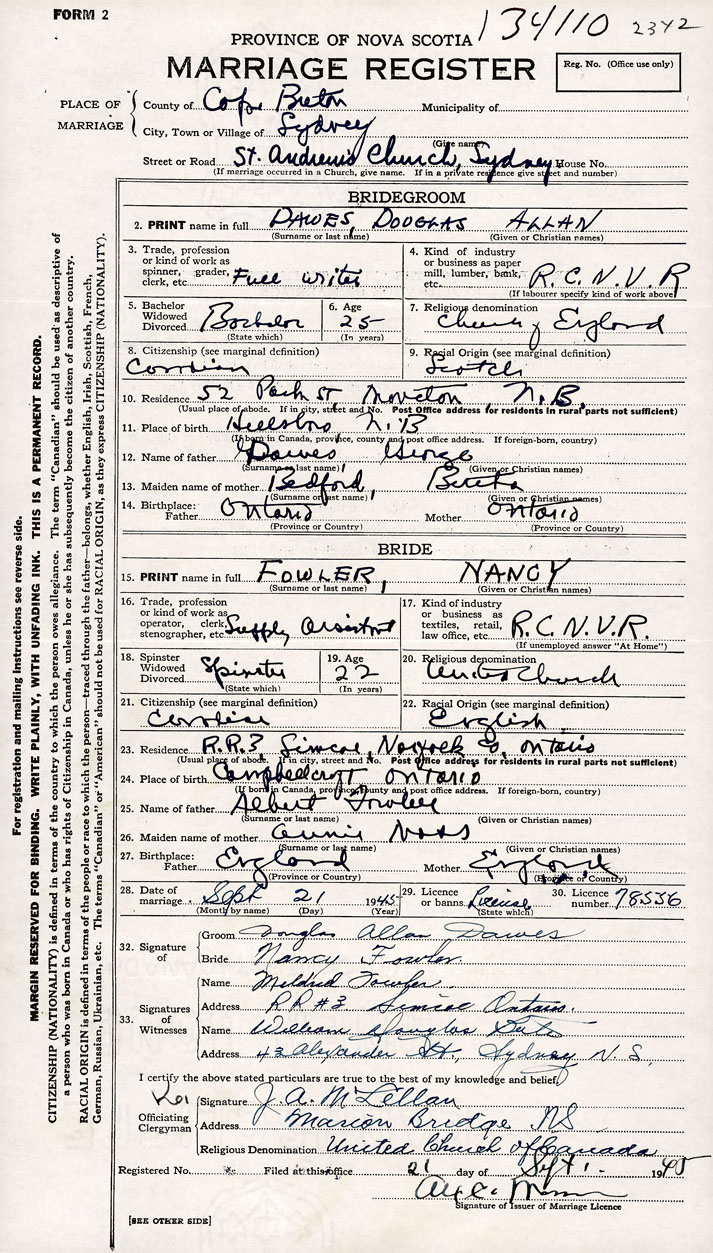 FORM 2
134110 2342
PROVINCE OF NOVA SCOTIA
MARRIAGE REGISTER
Reg. No. (Office use only)
PLACE OF MARRIAGE
County of Cape Breton Municipality of
City, Town or Village of Sydney
(Give name)
Street or Road St. Andrew's Church, Sydney House No.
(If marriage occurred in a Church, give name. If in a private residence give street and number)
BRIDEGROOM
2. PRINT name in full DAWES, DOUGLAS ALLAN
(Surname or last name) (Given or Christian names)
3. Trade, profession or kind of work as spinner, grader, clerk, etc. Full writer
4. Kind of industry or business as paper mill, lumber, bank, etc. R.C.N.V.R
(If labourer specify kind of work above)
5. Bachelor Widowed Divorced Bachelor
(State which)
6. Age 25
(In years)
7. Religious denomination Church of England
8. Citizenship (see marginal definition) Canadian
9. Racial Origin (see marginal definition) Scotch
10. Residence 52 Park St, Moncton, N.B.
(Usual place of abode. If in city, street and No. Post Office address for residents in rural parts not sufficient)
11. Place of birth Hillsboro N.B
(If born in Canada, province, county and post office address. If foreign-born, country)
12. Name of father Dawes George
(Surname or last name) (Given or Christian names)
13. Maiden name of mother Bedford, Bertha
(Surname or last name) (Given or Christian names)
14. Birthplace: Father Ontario Mother Ontario
(Province or Country) (Province or Country)
BRIDE
15. PRINT name in full FOWLER, NANCY
(Surname or last name) (Given or Christian names)
16. Trade, profession or kind of work as operator, clerk, stenographer, etc. Supply Assistant
17. Kind of industry or business as textiles, retail, law office, etc. R.C.N.V.R.
(If unemployed answer "At Home")
18. Spinster Widowed Divorced Spinster
(State which)
19. Age 22
(In years)
20. Religious denomination United Church
21. Citizenship (see marginal definition) Canadian
22. Racial Origin (see marginal definition) English
23. Residence R.R.3, Simcoe, Norfolk Co, Ontario
(Usual place of abode. If in city, street and No. Post Office address for residents in rural parts not sufficient)
24. Place of birth Campbellcroft Ontario
(If born in Canada, province, county and post office address. If foreign-born, country)
25. Name of father Albert Fowler
(Surname or last name) (Given or Christian names)
26. Maiden name of mother Annie
(Surname or last name) (Given or Christian names)
27. Birthplace: Father England Mother England
(Province or Country) (Province or Country)
28. Date of marriage Sept 21 1945
(Month by name) (Day) (Year)
29. Licence or banns License
(State which)
30. Licence number 78556
32. Signature of
Groom Douglas Allan Dawes
Bride Nancy Fowler
33. Signatures of Witnesses
Name Mildred Fowler
Address RR #3 Simcoe Ontario.
Name William Douglas
Address 43 Alexander St., Sydney N.S.
I certify the above stated particulars are true to the best of my knowledge and belief,
Officiating Clergyman
Signature J. A. McLellan
Address Marion Bridge NS
Religious Denomination United Church of Canada
Registered No. Filed at this office 21 day of Sept 1945
Signature of Issuer of Marriage Licence
[SEE OTHER SIDE]
For registration and mailing instructions see reverse side.
MARGIN RESERVED FOR BINDING. WRITE PLAINLY, WITH UNFADING INK. THIS IS A PERMANENT RECORD.
CITIZENSHIP (NATIONALITY) is defined in terms of the country to which the person owes allegiance. The term "Canadian" should be used as descriptive of
a person who was born in Canada or who has rights of Citizenship in Canada, unless he or she has subsequently become the citizen of another country.
RACIAL ORIGIN is defined in terms of the people or race to which the person—traced through the father—belongs, whether English, Irish, Scottish, French,
German, Russian, Ukrainian, etc. The terms "Canadian" or "American" should not be used for RACIAL ORIGIN, as they express CITIZENSHIP (NATIONALITY).